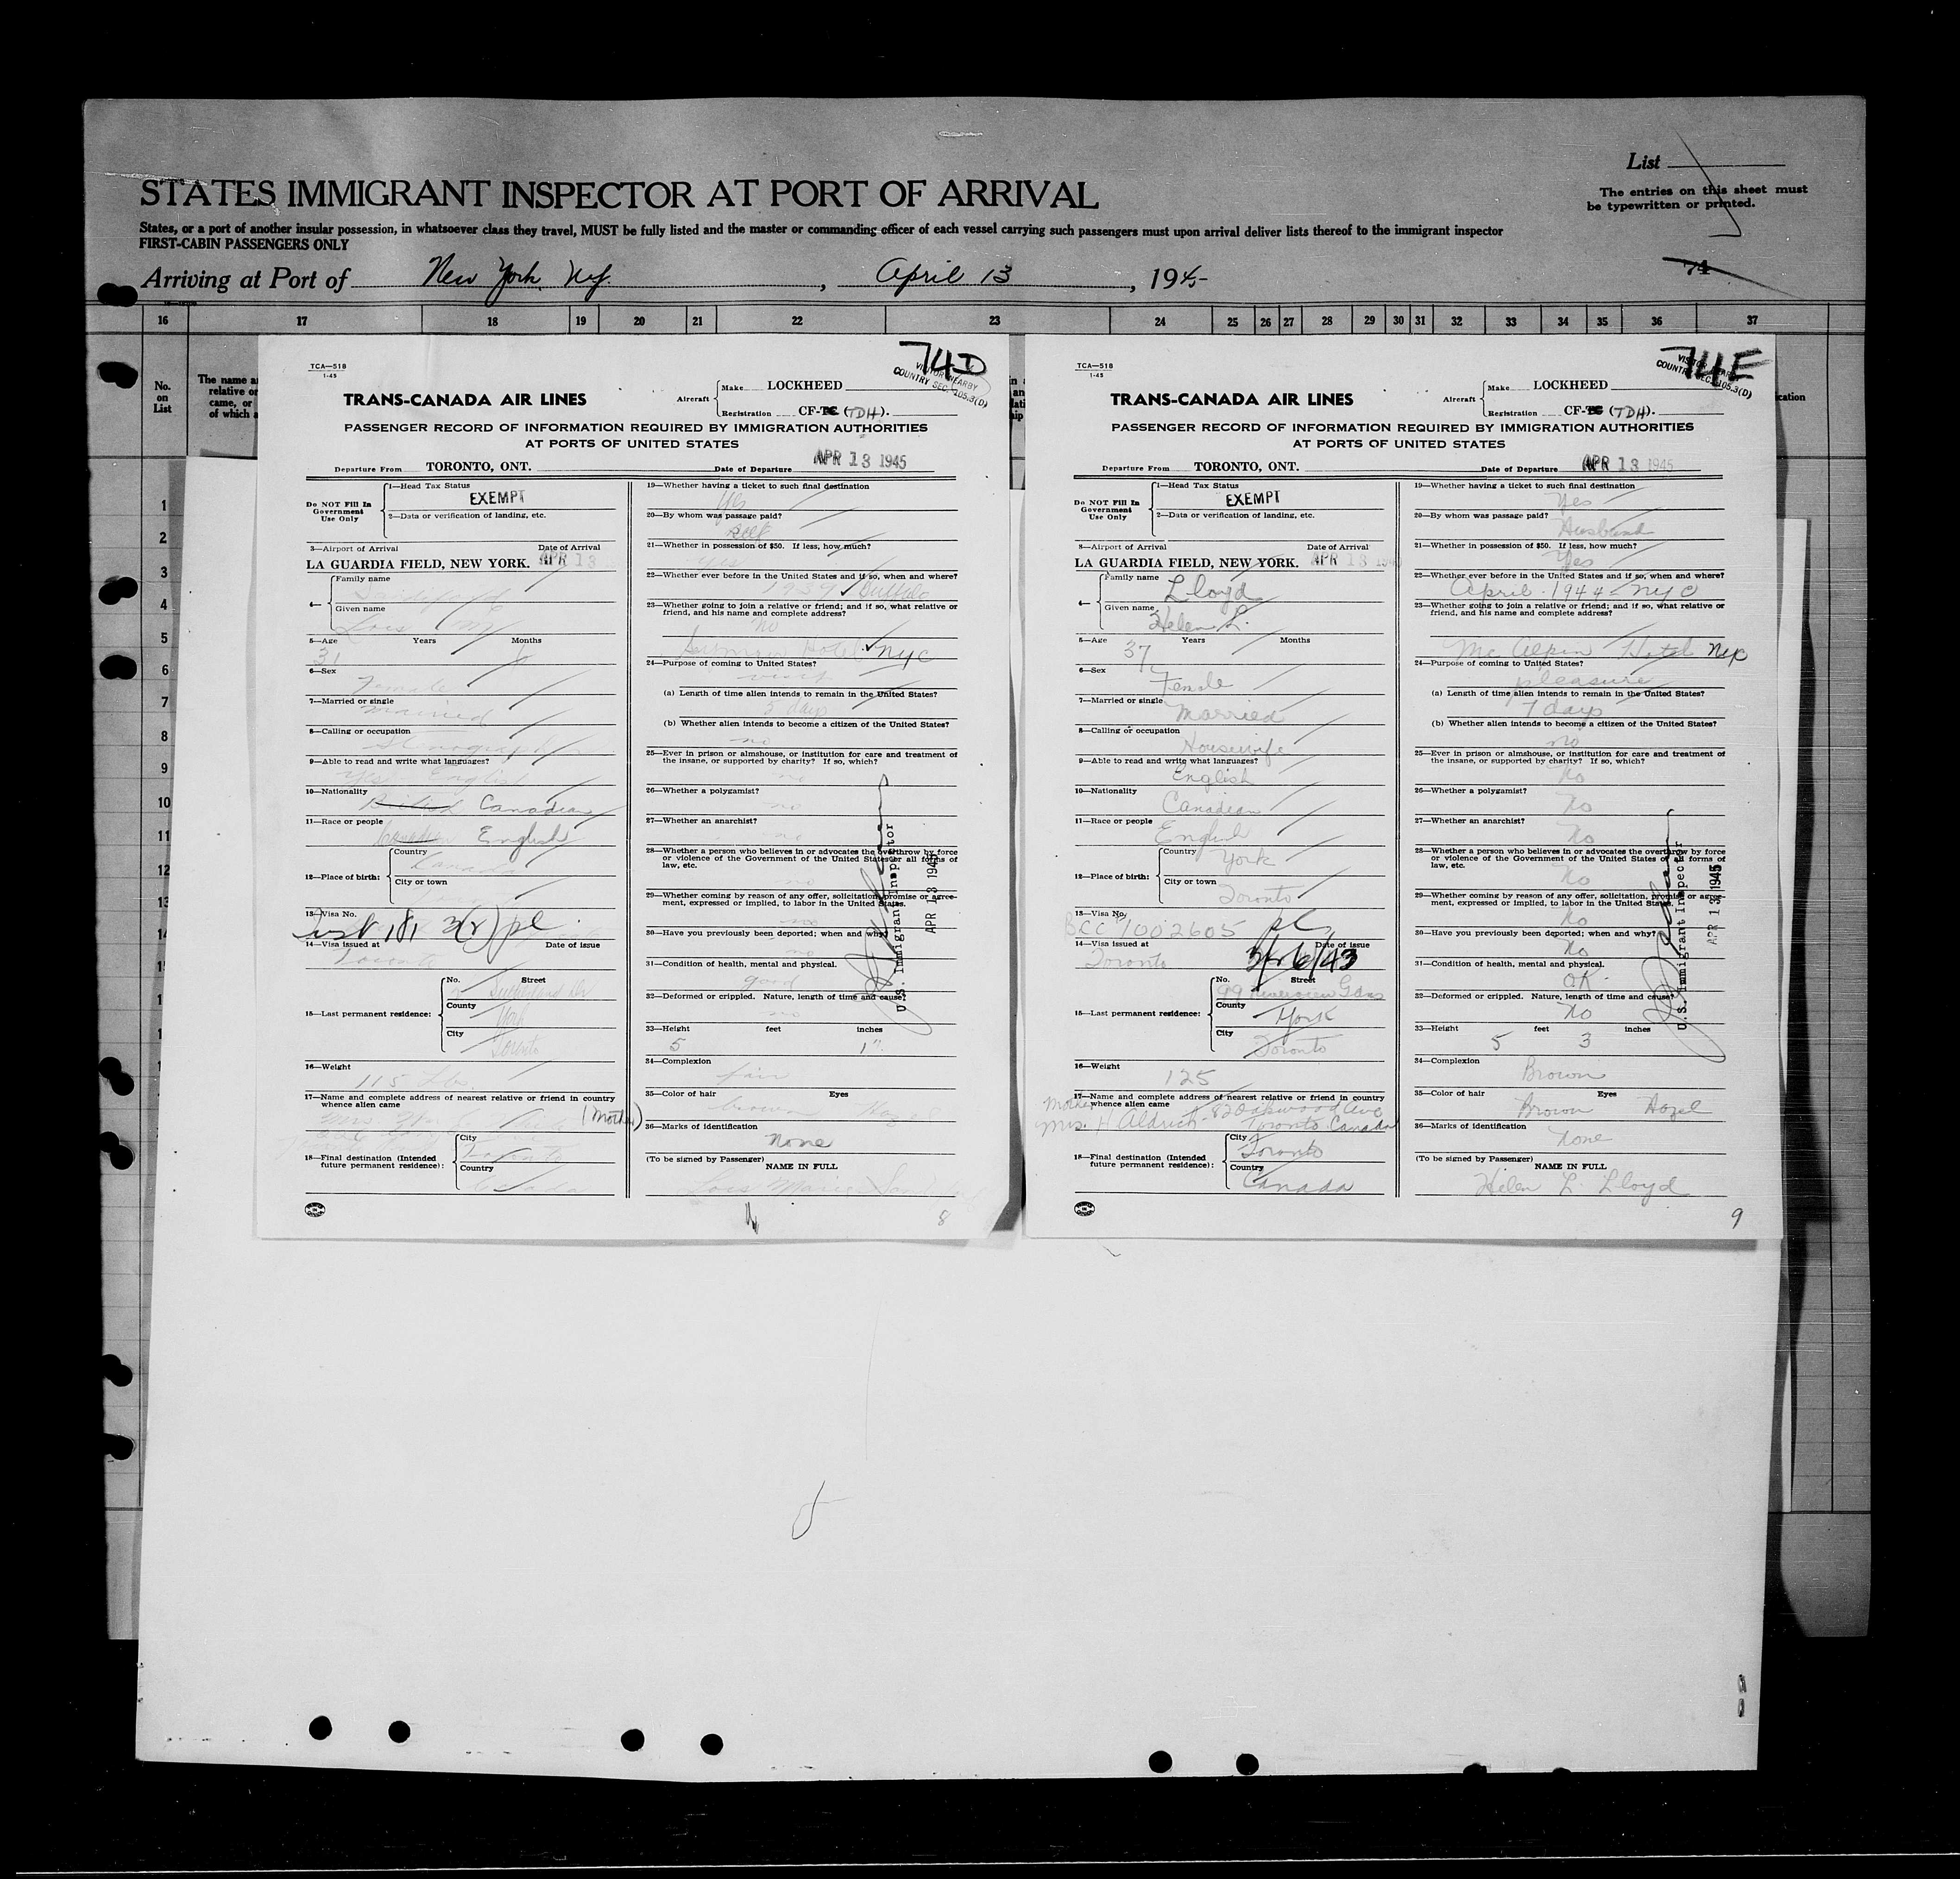 List
The entries on this sheet must
be typewritten or printed.
STATES IMMIGRANT INSPECTOR AT PORT OF ARRIVAL
States, or a port of another insular possession, in whatsoever class they travel, MUST be fully listed and the master or commanding officer of each vessel carrying such passengers must upon arrival deliver lists thereof to the immigrant inspector
FIRST-CABIN PASSENGERS ONLY
74
Arriving at Port of New York, N.Y. , April 13 , 1945
16 17 18 19 20 21 22 23 24 25 26 27 28 29 30 31 32 33 34 35 36 37
No.
on
List
The name a
relative or
came, or
of which a
1
2
3
4
5
6
7
8
9
10
11
12
13
14
15
74D
VISITOR NEARBY
COUNTRY SEC. 105.3(D)
TCA—518
1-45
TRANS-CANADA AIR LINES
Aircraft Make LOCKHEED
Registration CF-TC (TDH).
PASSENGER RECORD OF INFORMATION REQUIRED BY IMMIGRATION AUTHORITIES
AT PORTS OF UNITED STATES
Departure From TORONTO, ONT. Date of Departure APR 13 1945
Do NOT Fill In
Government
Use Only
1—Head Tax Status
EXEMPT
2—Data or verification of landing, etc.
3—Airport of Arrival Date of Arrival
LA GUARDIA FIELD, NEW YORK. APR 13
4— Family name
Given name
Lois M
5—Age Years Months
31
6—Sex
Female
7—Married or single
Married
8—Calling or occupation
Stenographer
9—Able to read and write what languages?
Yes English
10—Nationality
British Canadian
11—Race or people
Canadian English
12—Place of birth: Country
Canada
City or town
13—Visa No.
14—Visa issued at Date of issue
Toronto
15—Last permanent residence: No. Street
County
York
City
Toronto
16—Weight
115 Lbs.
17—Name and complete address of nearest relative or friend in country
whence alien came
Mrs. (Mother)
18—Final destination (Intended
future permanent residence): City
Toronto
Country
Canada
19—Whether having a ticket to such final destination
Yes
20—By whom was passage paid?
Self
21—Whether in possession of $50. If less, how much?
Yes
22—Whether ever before in the United States and if so, when and where?
1939 Buffalo
23—Whether going to join a relative or friend; and if so, what relative or
friend, and his name and complete address?
No
Hotel NYC
24—Purpose of coming to United States?
visit
(a) Length of time alien intends to remain in the United States?
5 days
(b) Whether alien intends to become a citizen of the United States?
no
25—Ever in prison or almshouse, or institution for care and treatment of
the insane, or supported by charity? If so, which?
no
26—Whether a polygamist?
no
27—Whether an anarchist?
no
28—Whether a person who believes in or advocates the overthrow by force
or violence of the Government of the United States or all forms of
law, etc.
no
29—Whether coming by reason of any offer, solicitation, promise or agree-
ment, expressed or implied, to labor in the United States.
no
30—Have you previously been deported; when and why?
no
31—Condition of health, mental and physical.
good
32—Deformed or crippled. Nature, length of time and cause?
no
33—Height feet inches
5 1"
34—Complexion
fair
35—Color of hair Eyes
brown Hazel
36—Marks of identification
None
(To be signed by Passenger) NAME IN FULL
Lois Marie
U.S. Immigrant Inspector
APR 13 1945
8
74E
VISITOR NEARBY
COUNTRY SEC. 105.3(D)
TCA—518
1-45
TRANS-CANADA AIR LINES
Aircraft Make LOCKHEED
Registration CF-TC (TDH).
PASSENGER RECORD OF INFORMATION REQUIRED BY IMMIGRATION AUTHORITIES
AT PORTS OF UNITED STATES
Departure From TORONTO, ONT. Date of Departure APR 13 1945
Do NOT Fill In
Government
Use Only
1—Head Tax Status
EXEMPT
2—Data or verification of landing, etc.
3—Airport of Arrival Date of Arrival
LA GUARDIA FIELD, NEW YORK. APR 13 1945
4— Family name
Lloyd
Given name
Helen L.
5—Age Years Months
37
6—Sex
Female
7—Married or single
Married
8—Calling or occupation
Housewife
9—Able to read and write what languages?
English
10—Nationality
Canadian
11—Race or people
English
12—Place of birth: Country
York
City or town
Toronto
13—Visa No.
BCC 1002605
14—Visa issued at Date of issue
Toronto
15—Last permanent residence: No. Street
99 Gdns
County
York
City
Toronto
16—Weight
125
17—Name and complete address of nearest relative or friend in country
whence alien came
Mother
Mrs. H Aldrich 82 Oakwood Ave
Toronto Canada
18—Final destination (Intended
future permanent residence): City
Toronto
Country
Canada
19—Whether having a ticket to such final destination
Yes
20—By whom was passage paid?
Husband
21—Whether in possession of $50. If less, how much?
Yes
22—Whether ever before in the United States and if so, when and where?
April 1944 - NYC
23—Whether going to join a relative or friend; and if so, what relative or
friend, and his name and complete address?
Mc Alpin Hotel NYC
24—Purpose of coming to United States?
pleasure
(a) Length of time alien intends to remain in the United States?
7 days
(b) Whether alien intends to become a citizen of the United States?
no
25—Ever in prison or almshouse, or institution for care and treatment of
the insane, or supported by charity? If so, which?
No
26—Whether a polygamist?
No
27—Whether an anarchist?
No
28—Whether a person who believes in or advocates the overthrow by force
or violence of the Government of the United States or all forms of
law, etc.
No
29—Whether coming by reason of any offer, solicitation, promise or agree-
ment, expressed or implied, to labor in the United States.
No
30—Have you previously been deported; when and why?
No
31—Condition of health, mental and physical.
OK
32—Deformed or crippled. Nature, length of time and cause?
No
33—Height feet inches
5 3
34—Complexion
Brown
35—Color of hair Eyes
Brown Hazel
36—Marks of identification
None
(To be signed by Passenger) NAME IN FULL
Helen L. Lloyd
U.S. Immigrant Inspector
APR 13 1945
9